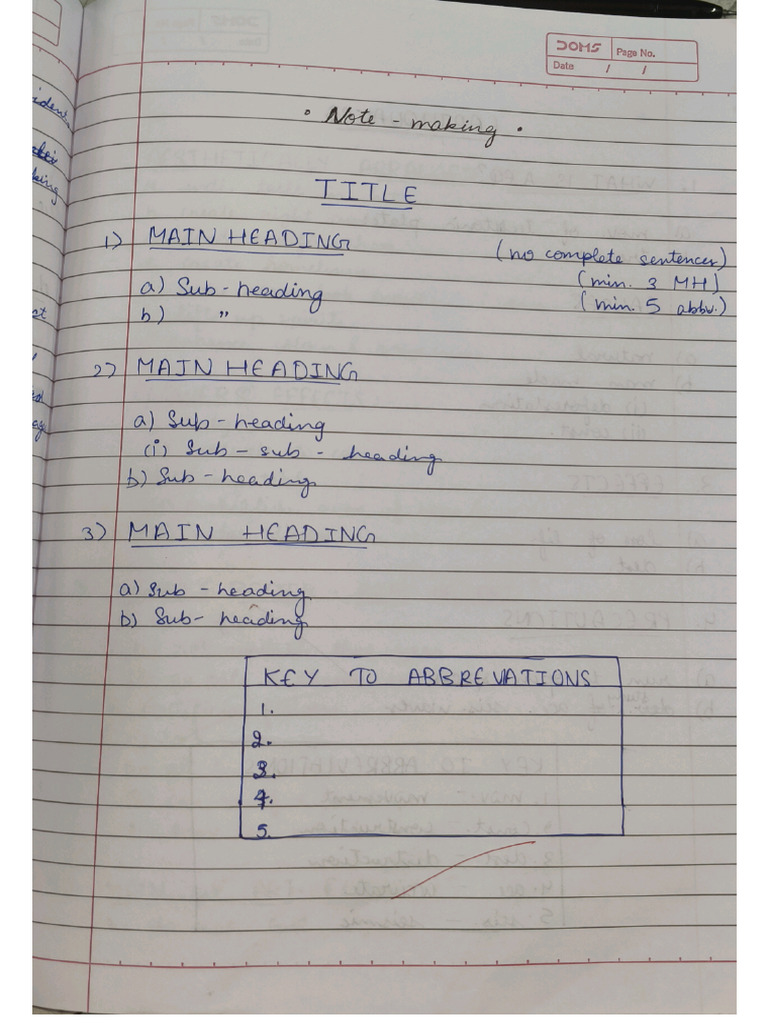 DOMS
Page No.
Date / /
• Note - making •
TITLE
1) MAIN HEADING
(no complete sentences)
a) Sub - heading
(min. 3 MH)
b) "
(min. 5 abbv.)
2) MAIN HEADING
a) Sub - heading
(i) Sub - sub - heading
b) Sub - heading
3) MAIN HEADING
a) Sub - heading
b) Sub - heading
KEY TO ABBREVATIONS
1.
2.
3.
4.
5.